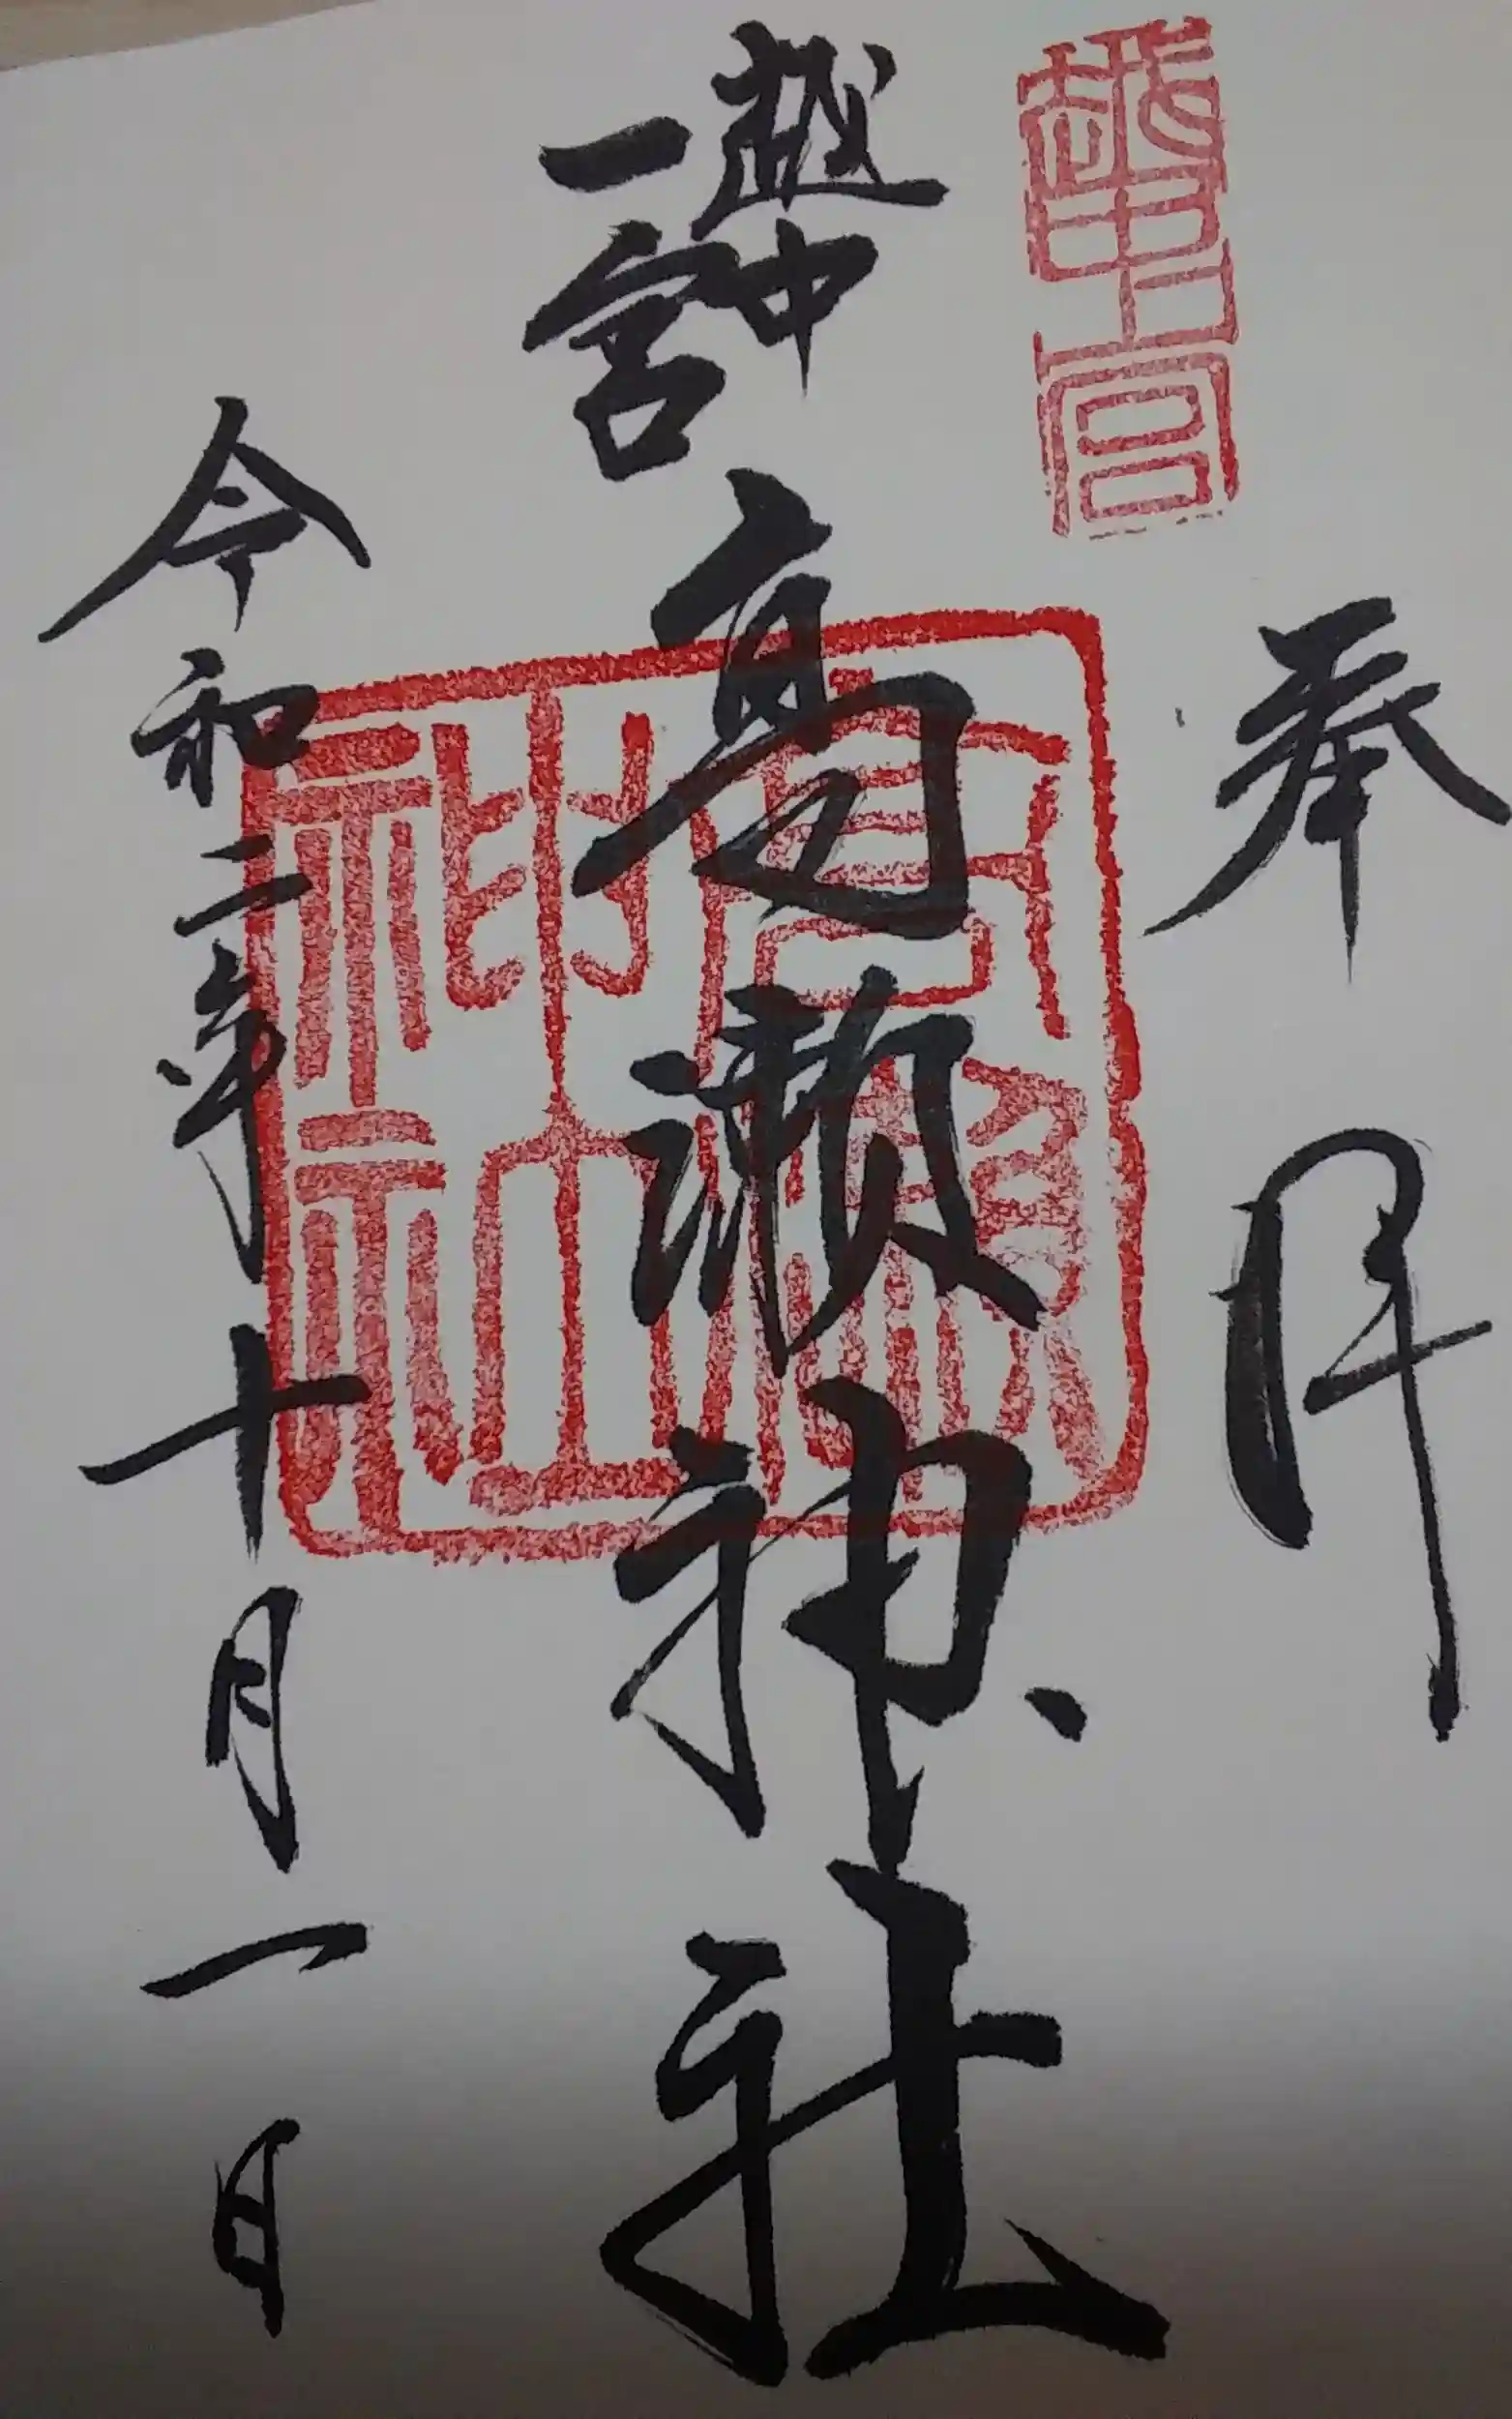 奉拝
越中
一宮
高瀬神社
令和二年十月一日
高瀬
神社